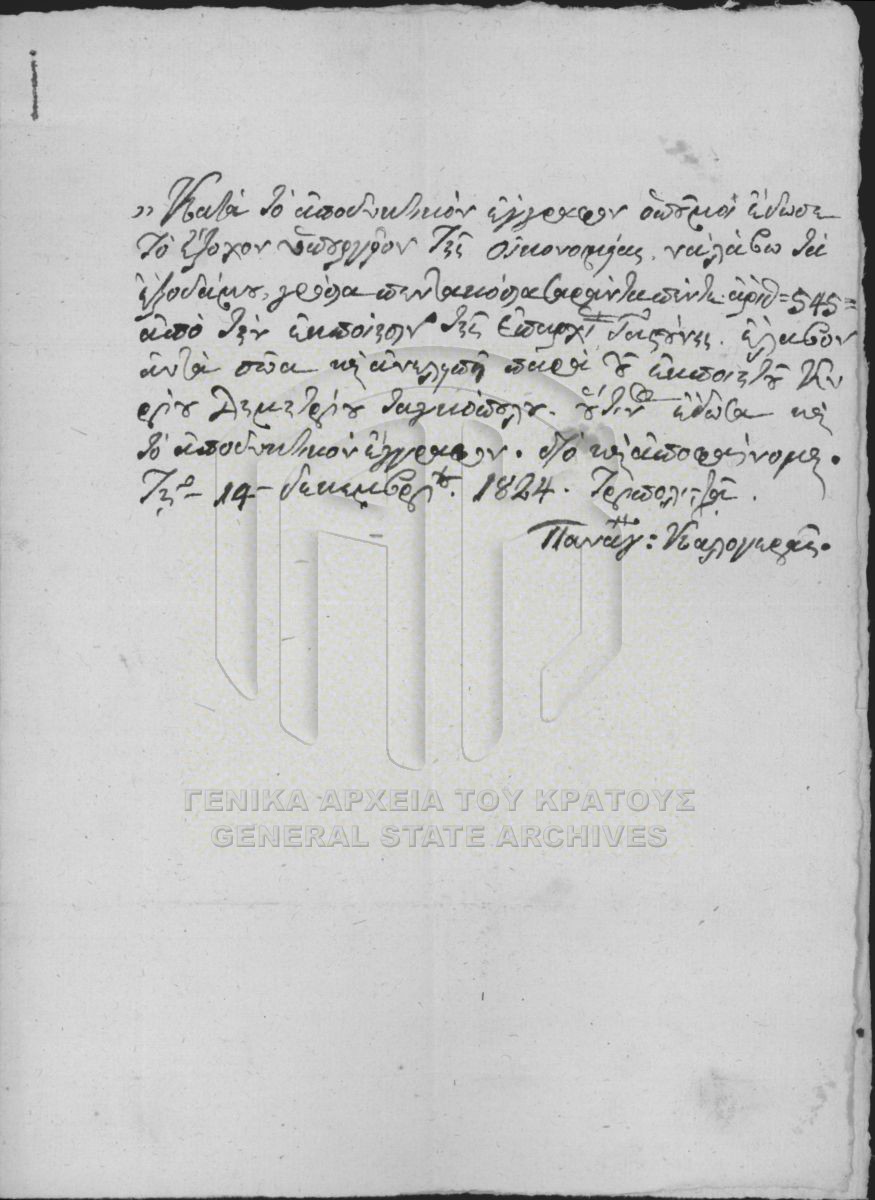 „ Κατὰ τὸ ἀποδυκτικὸν ἔγγραφον ὁποῦ μοὶ ἔδωσε
τὸ ἔξοχον ὑπουργεῖον τῆς οἰκονομίας, νὰ λάβω τὰ
ἔξοδάμου, γρόσια πεντακόσια σαράντα πέντε ἀριθ=545=
ἀπὸ τὴν ἐκποίησιν τῆς ἐπαρχί Γαστούνης. ἔλαβον
αὐτὰ σῶα καὶ ἀνελιπῆ παρὰ τοῦ ἐκποιητοῦ Κυ
ρίου Δημητρίου
τὸ ἀποδυκτικὸν ἔγγραφον. διὸ καὶ ἀποφαίνομαι.
Τῇ 14 δεκεμβρίου. 1824. Τριπολιτζᾷ.
Παναγ: Καλογερᾶς.
ΓΕΝΙΚΑ ΑΡΧΕΙΑ ΤΟΥ ΚΡΑΤΟΥΣ
GENERAL STATE ARCHIVES